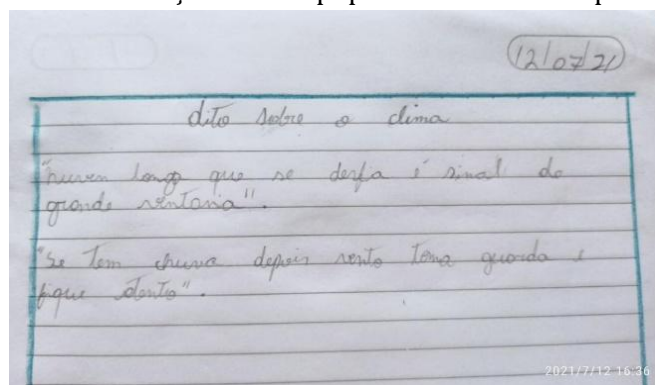 12/07/21
dito sobre o clima
"nuvem longa que se desfia é sinal de
grande ventania".
"se tem chuva depois vento toma guarda e
fique atento".
2021/7/12 16:36